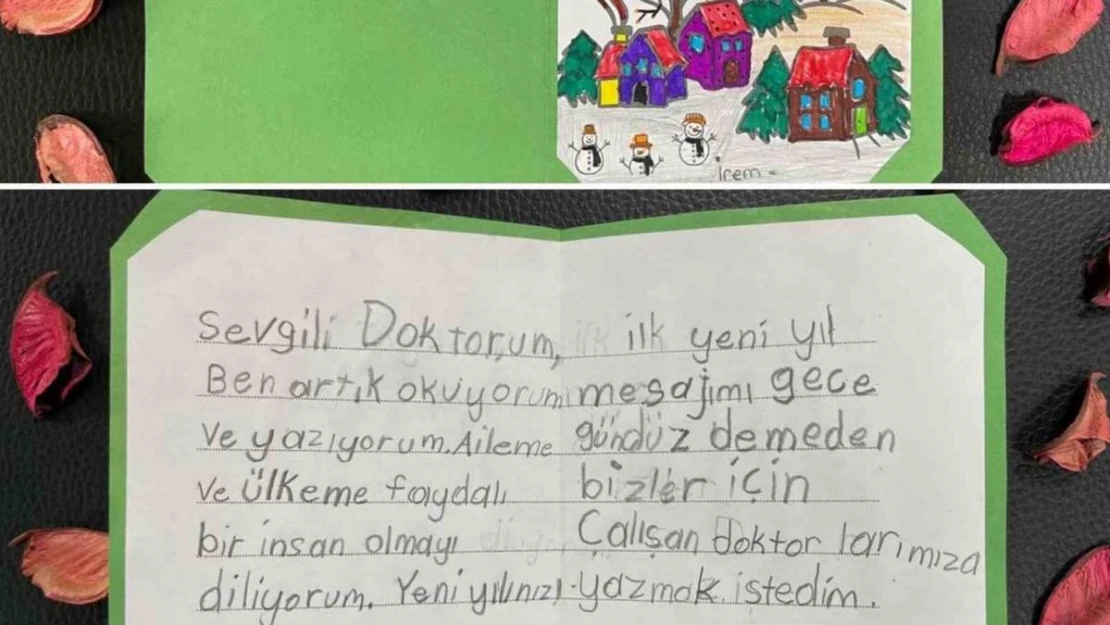 İrem
Sevgili Doktorum,
Ben artık okuyorum
ve yazıyorum. Aileme
ve ülkeme faydalı
bir insan olmayı
diliyorum. Yeni yılınızı
ilk yeni yıl
mesajımı gece
gündüz demeden
bizler için
Çalışan doktorlarımıza
yazmak istedim.